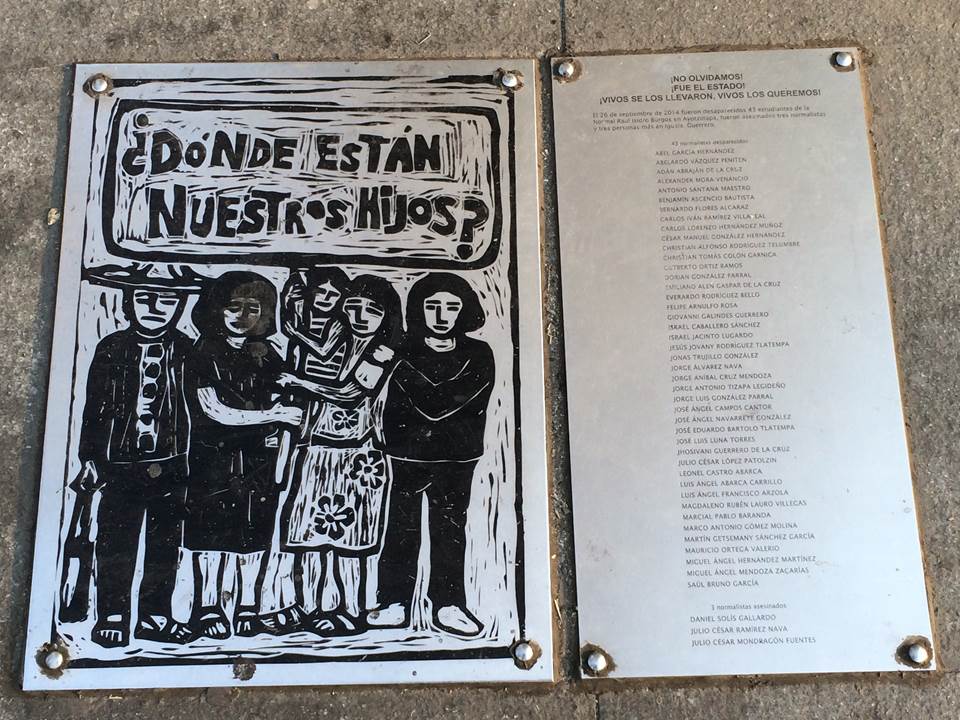 ¿DÓNDE ESTÁN
NUESTROS HIJOS?
¡NO OLVIDAMOS!
¡FUE EL ESTADO!
¡VIVOS SE LOS LLEVARON, VIVOS LOS QUEREMOS!
El 26 de septiembre de 2014 fueron desaparecidos 43 estudiantes de la
Normal Raúl Isidro Burgos en Ayotzinapa, fueron asesinados tres normalistas
y tres personas más en Iguala, Guerrero.
43 normalistas desaparecidos
ABEL GARCÍA HERNÁNDEZ
ABELARDO VÁZQUEZ PENITEN
ADÁN ABRAJÁN DE LA CRUZ
ALEXANDER MORA VENANCIO
ANTONIO SANTANA MAESTRO
BENJAMÍN ASCENCIO BAUTISTA
BERNARDO FLORES ALCARAZ
CARLOS IVÁN RAMÍREZ VILLARREAL
CARLOS LORENZO HERNÁNDEZ MUÑOZ
CÉSAR MANUEL GONZÁLEZ HERNÁNDEZ
CHRISTIAN ALFONSO RODRÍGUEZ TELUMBRE
CHRISTIAN TOMÁS COLÓN GARNICA
CUTBERTO ORTIZ RAMOS
DORIAN GONZÁLEZ PARRAL
EMILIANO ALEN GASPAR DE LA CRUZ
EVERARDO RODRÍGUEZ BELLO
FELIPE ARNULFO ROSA
GIOVANNI GALINDES GUERRERO
ISRAEL CABALLERO SÁNCHEZ
ISRAEL JACINTO LUGARDO
JESÚS JOVANY RODRÍGUEZ TLATEMPA
JONAS TRUJILLO GONZÁLEZ
JORGE ÁLVAREZ NAVA
JORGE ANÍBAL CRUZ MENDOZA
JORGE ANTONIO TIZAPA LEGIDEÑO
JORGE LUIS GONZÁLEZ PARRAL
JOSÉ ÁNGEL CAMPOS CANTOR
JOSÉ ÁNGEL NAVARRETE GONZÁLEZ
JOSÉ EDUARDO BARTOLO TLATEMPA
JOSÉ LUIS LUNA TORRES
JHOSIVANI GUERRERO DE LA CRUZ
JULIO CÉSAR LÓPEZ PATOLZIN
LEONEL CASTRO ABARCA
LUIS ÁNGEL ABARCA CARRILLO
LUIS ÁNGEL FRANCISCO ARZOLA
MAGDALENO RUBÉN LAURO VILLEGAS
MARCIAL PABLO BARANDA
MARCO ANTONIO GÓMEZ MOLINA
MARTÍN GETSEMANY SÁNCHEZ GARCÍA
MAURICIO ORTEGA VALERIO
MIGUEL ÁNGEL HERNÁNDEZ MARTÍNEZ
MIGUEL ÁNGEL MENDOZA ZACARÍAS
SAÚL BRUNO GARCÍA
3 normalistas asesinados
DANIEL SOLÍS GALLARDO
JULIO CÉSAR RAMÍREZ NAVA
JULIO CÉSAR MONDRAGÓN FUENTES